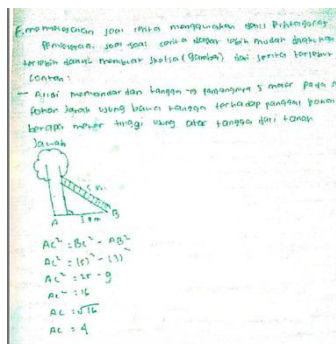 F. menyelesaikan soal cerita menggunakan dalil Pythagoras
soal-soal cerita dapat lebih mudah
terlebih dahulu membuat sketsa (gambar) dari cerita tersebut
Contoh :
- Alfai menyandarkan tangga yg panjangnya 5 meter pada
pohon Jarak ujung bawah tangga terhadap pangkal pohon
berapa meter tinggi ujung atas tangga dari tanah
Jawab
5 m
A 3 m B
AC² = BC² - AB²
AC² = (5)² - (3)²
AC² = 25 - 9
AC² = 16
AC = √16
AC = 4